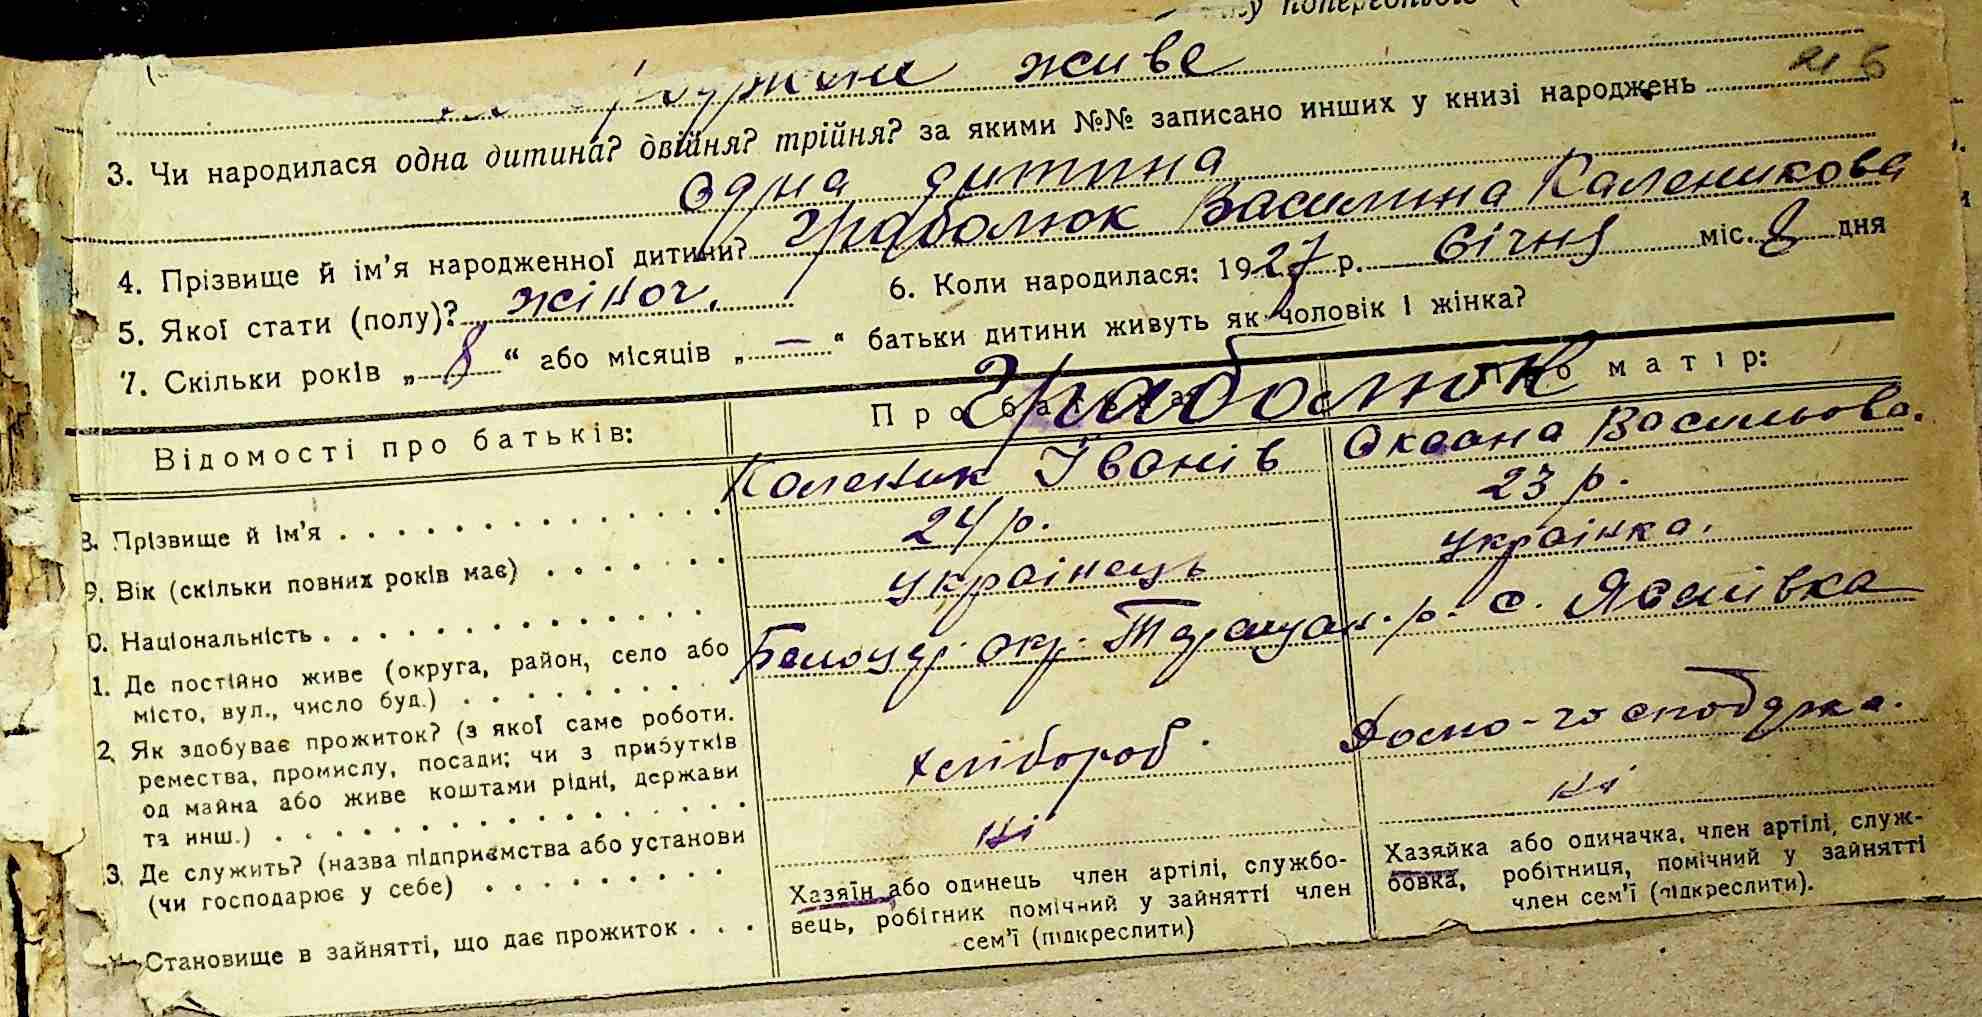 попередньою (
живе
3. Чи народилася одна дитина? двійня? трійня? за якими №№ записано инших у книзі народжень
одна дитина
4. Прізвище й ім'я народженної дитини? Граболюк Василина Каленикова
5. Якої стати (полу)? жіноч. 6. Коли народилася: 1927 р. Січня міс. 8 дня
7. Скільки років „ 8 “ або місяців „ — “ батьки дитини живуть як чоловік і жінка?
Граболюк
Відомості про батьків: Про батька: Про матір:
8. Прізвище й ім'я Каленик Іванів Оксана Васильова.
9. Вік (скільки повних років має) 24 р. 23 р.
0. Національність українець українка.
1. Де постійно живе (округа, район, село або місто, вул., число буд.) Білоцер. окр. Таращан. р. с.
2. Як здобуває прожиток? (з якої саме роботи.
ремества, промислу, посади; чи з прибутків
од майна або живе коштами рідні, держави
та инш.) хлібороб. Домо-господарка.
3. Де служить? (назва підприємства або установи
(чи господарює у себе) ні ні
Становище в зайнятті, що дає прожиток
Хазяїн або одинець член артілі, службо-
вець, робітник помічний у зайнятті член
сем'ї (підкреслити)
Хазяйка або одиначка, член артілі, служ-
бовка, робітниця, помічний у зайнятті
член сем'ї (підкреслити).